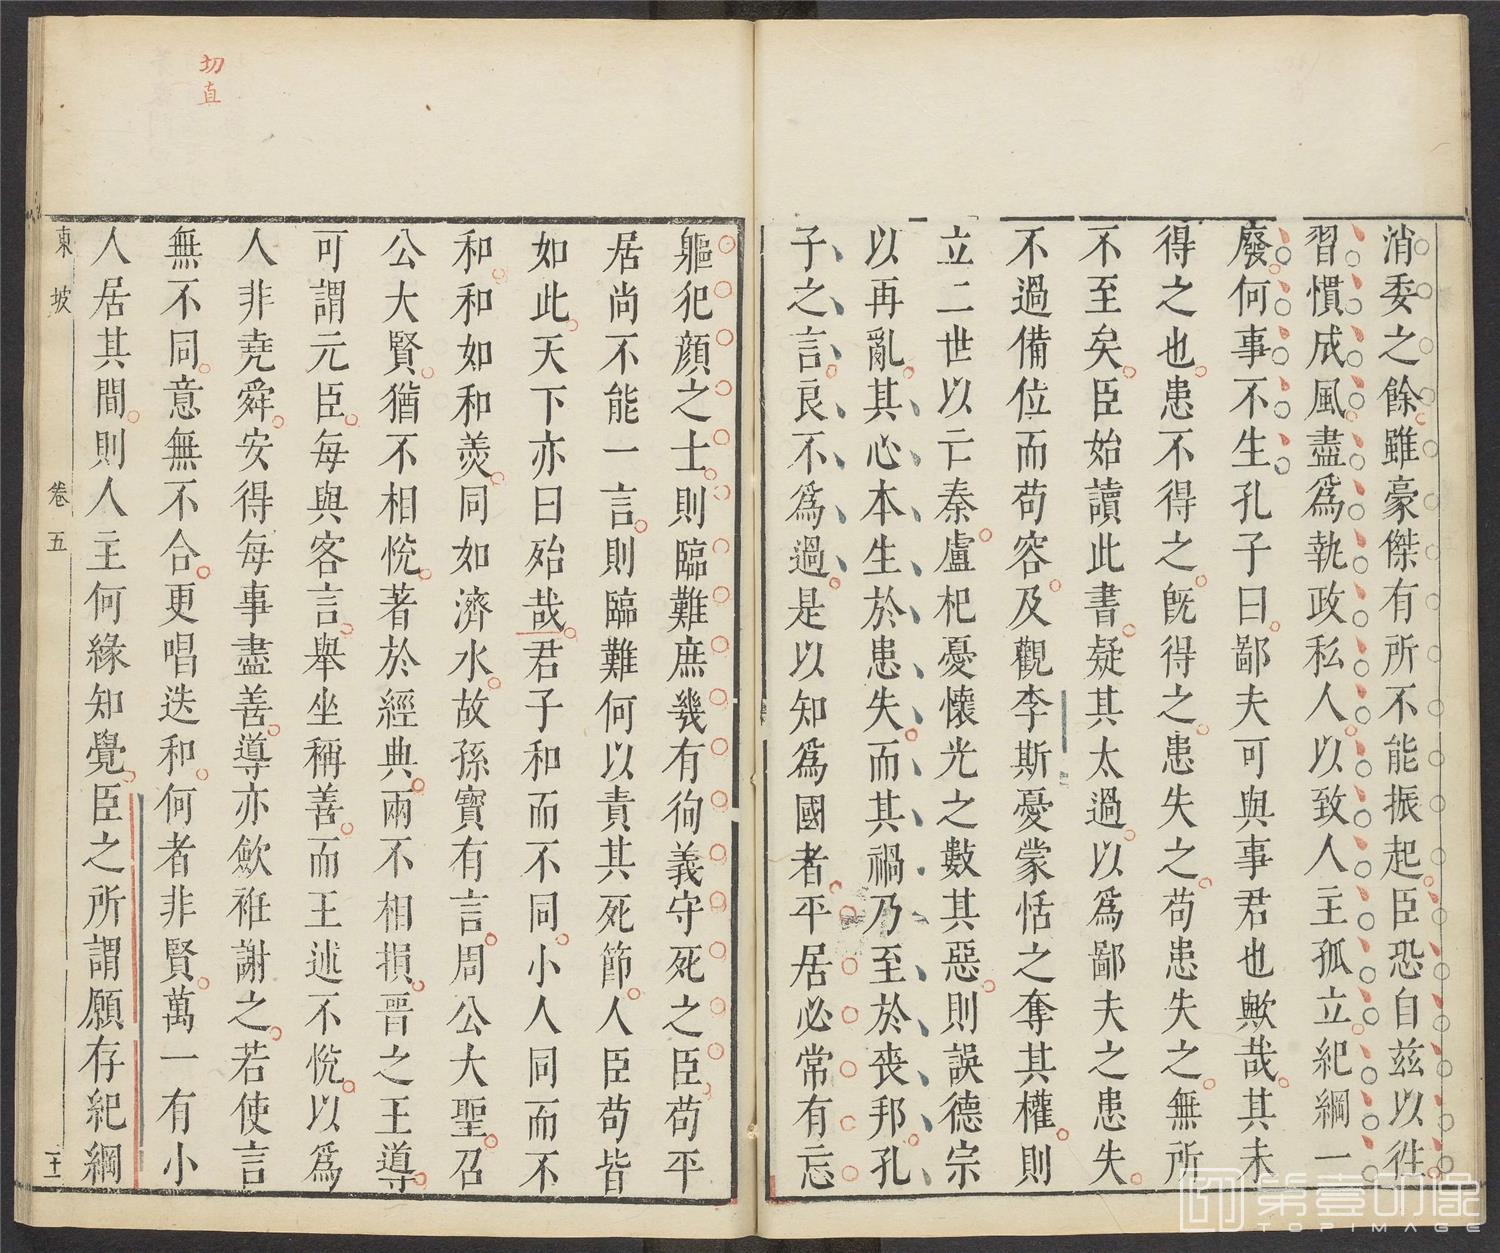 消委之餘雖豪傑有所不能振起臣恐自兹以徃
習慣成風盡爲執政私人以致人主孤立紀綱一
廢何事不生孔子曰鄙夫可與事君也歟哉其未
得之也患不得之旣得之患失之苟患失之無所
不至矣臣始讀此書疑其太過以爲鄙夫之患失
不過備位而苟容及觀李斯憂蒙恬之奪其權則
立二世以亡秦盧杞憂懷光之數其惡則誤德宗
以再亂其心本生於患失而其禍乃至於喪邦孔
子之言良不爲過是以知爲國者平居必常有忘
軀犯顏之士則臨難庶幾有徇義守死之臣苟平
居尚不能一言則臨難何以責其死節人臣苟皆
如此天下亦曰殆哉君子和而不同小人同而不
和和如和羹同如濟水故孫寶有言周公大聖召
公大賢猶不相悅著於經典兩不相損晉之王導
可謂元臣每與客言舉坐稱善而王述不悅以爲
人非堯舜安得每事盡善導亦歛袵謝之若使言
無不同意無不合更唱迭和何者非賢萬一有小
人居其間則人主何緣知覺臣之所謂願存紀綱
東坡 卷五 十二
切直
第壹印像
TOPIMAGE